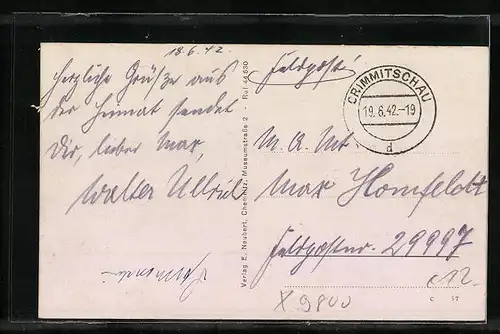 18.6.42.
Herzliche Grüße aus
der Heimat sendet
Dir, lieber Max,
Walter Ullrich
Verlag E. Neubert, Chemnitz, Museumstraße 2 · Ruf 44 530
Feldpost!
CRIMMITSCHAU
19.6.42.-19
d
M.A. Mt
Max Homfeldt
Feldpostnr. 29997
C 12.
C 37
X 9800